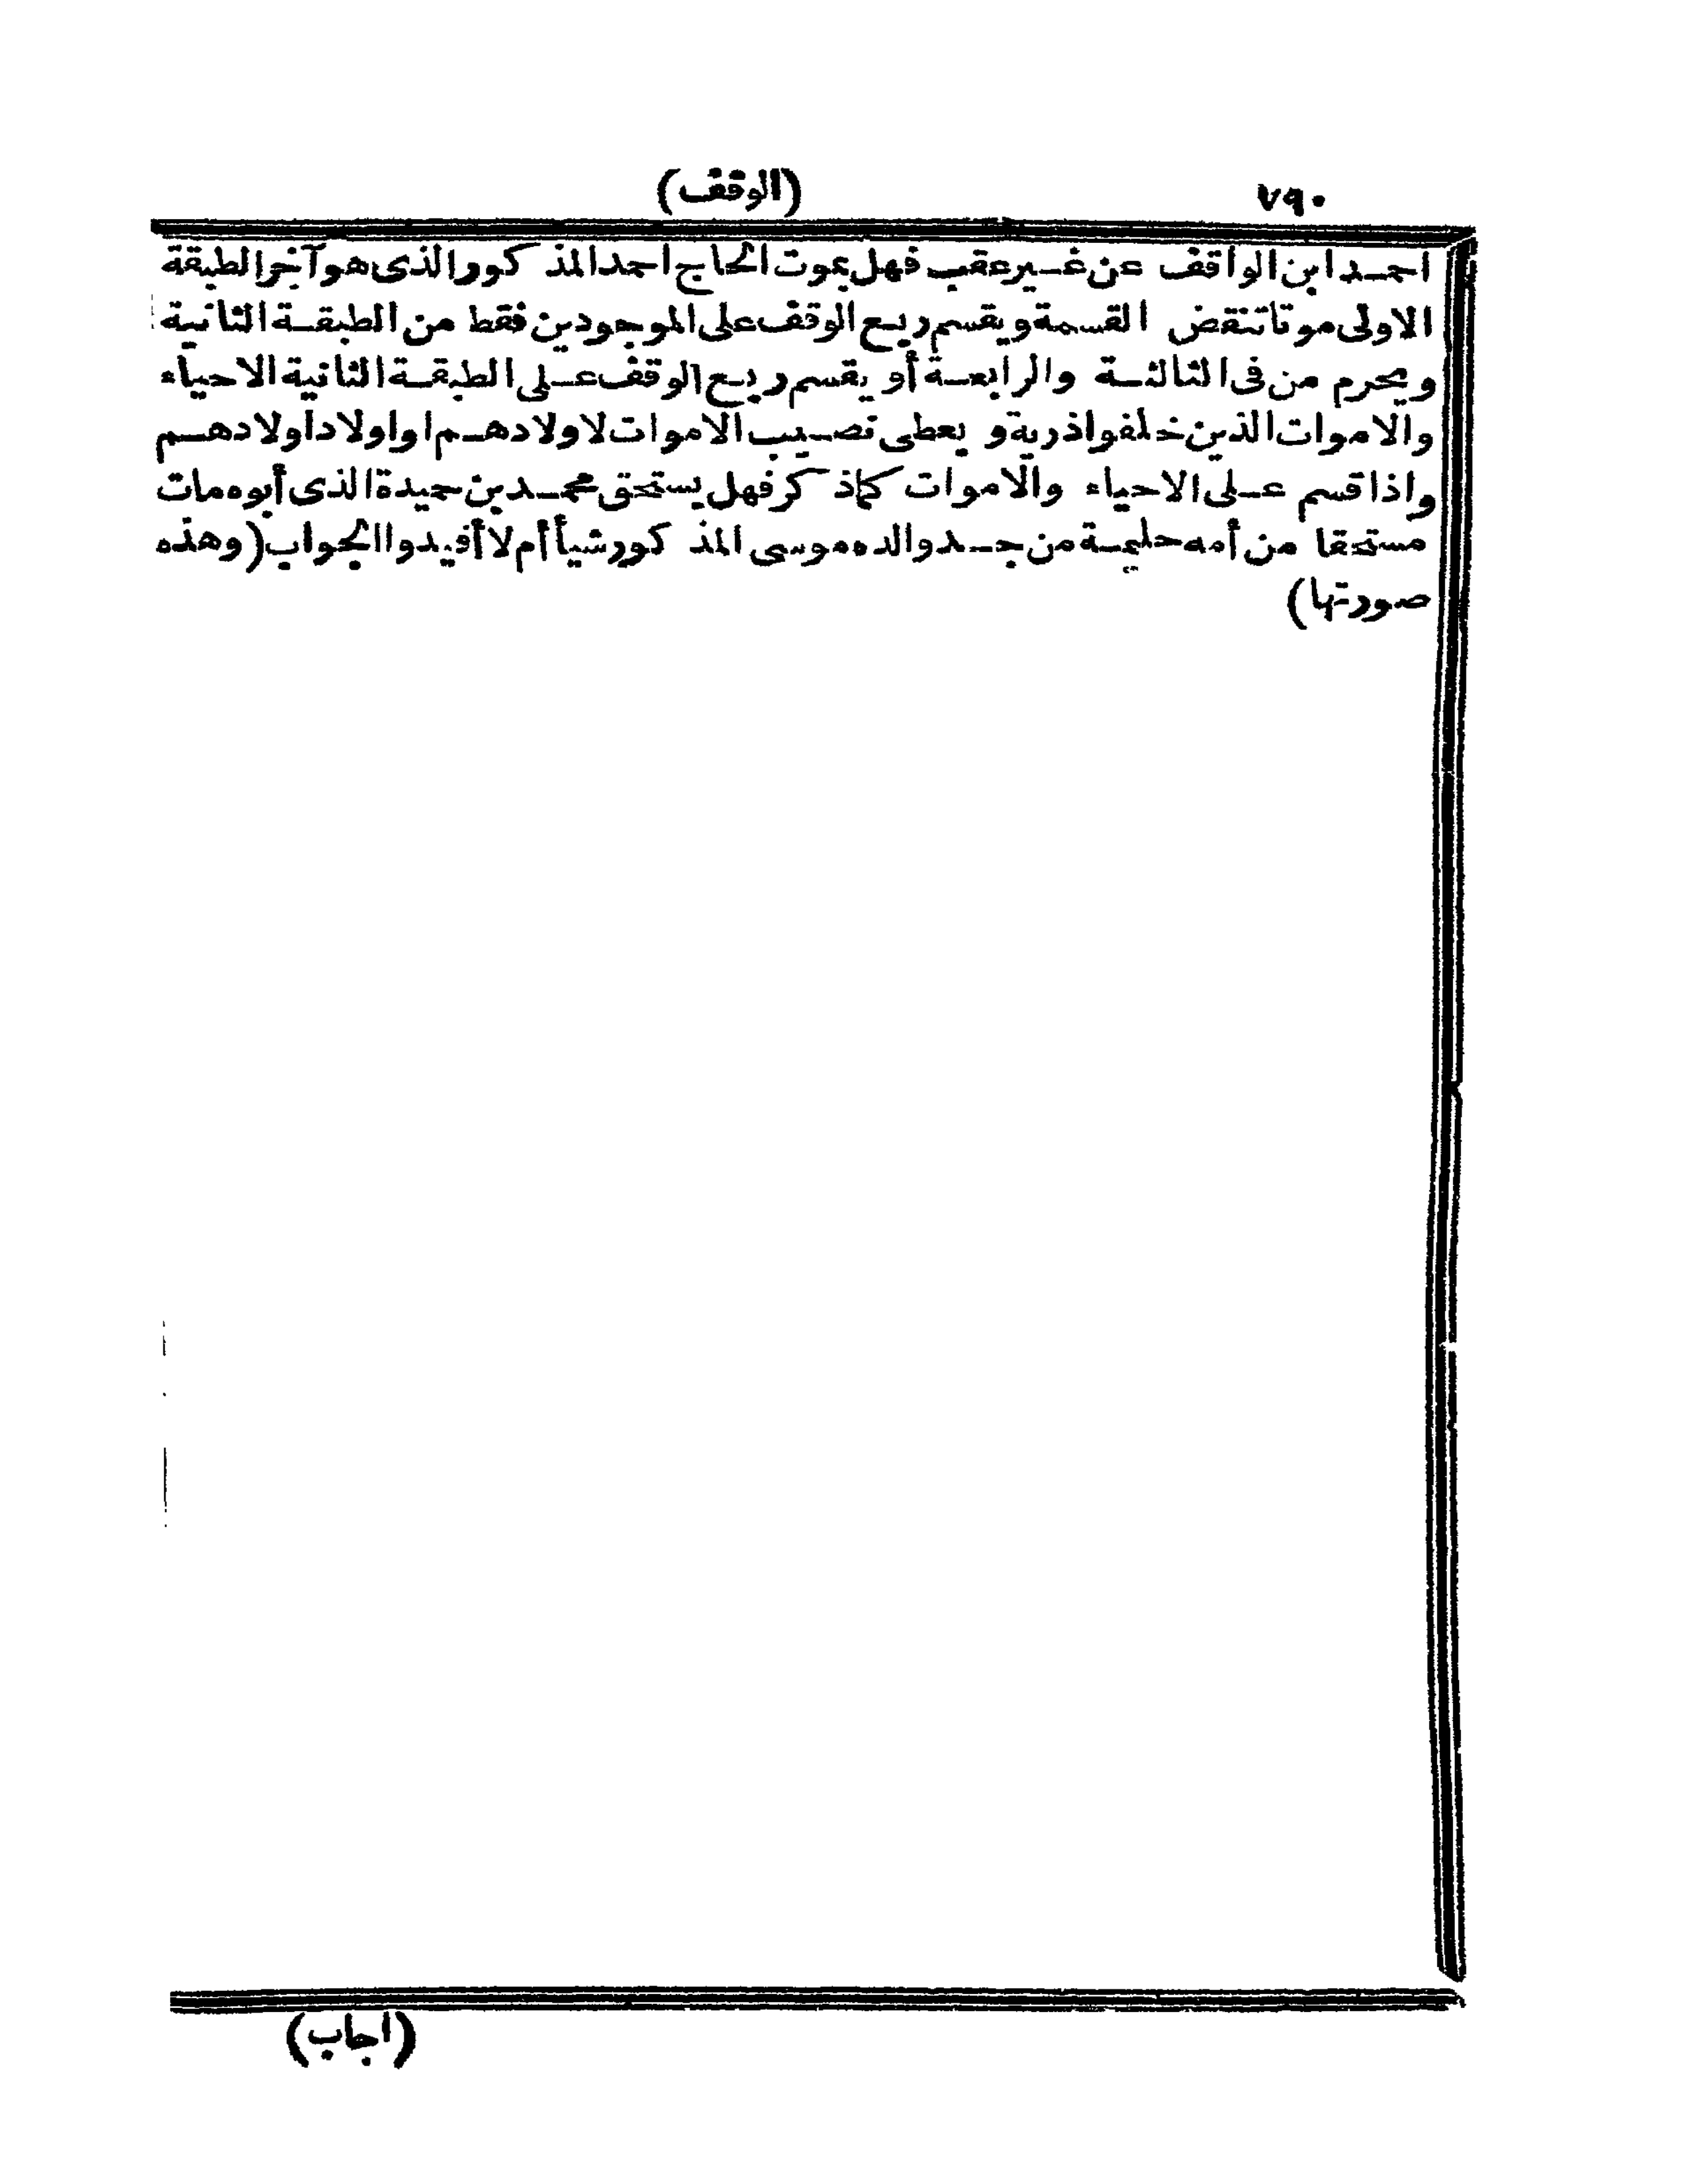 ٧٩٠ (الوقف)
احمد ابن الواقف عن غير عقب فهل بموت الحاج احمد المذكور الذى هو آخر الطبقة
الاولى موتا تنقض القسمة ويقسم ريع الوقف على الموجودين فقط من الطبقة الثانية
ويحرم من فى الثالثة والرابعة أو يقسم ريع الوقف على الطبقة الثانية الاحياء
والاموات الذين خلفوا ذرية ويعطى نصيب الاموات لاولادهم او اولاد اولادهم
واذا قسم على الاحياء والاموات كما ذكر فهل يستحق محمد بن حميدة الذى أبوه مات
مستحقا من أمه حليمة من جد والده موسى المذكور شيأ أم لا أفيدوا الجواب (وهذه
صورتها)
(اجاب)